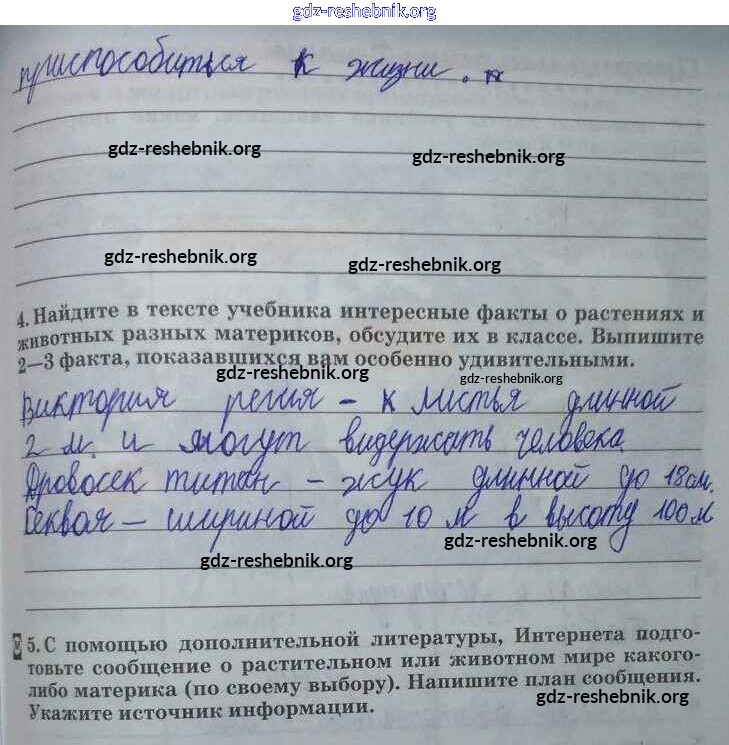 gdz-reshebnik.org
приспособиться к жизни.
gdz-reshebnik.org
gdz-reshebnik.org
gdz-reshebnik.org
gdz-reshebnik.org
4. Найдите в тексте учебника интересные факты о растениях и
животных разных материков, обсудите их в классе. Выпишите
2—3 факта, показавшихся вам особенно удивительными.
gdz-reshebnik.org
gdz-reshebnik.org
Виктория регия - к листья длинной
2 м. и могут видержать человека
Дровосек титан - жук длинной до 18 см.
Секвоя - шириной до 10 м в высоту 100 м
gdz-reshebnik.org
gdz-reshebnik.org
5. С помощью дополнительной литературы, Интернета подго-
товьте сообщение о растительном или животном мире какого-
либо материка (по своему выбору). Напишите план сообщения.
Укажите источник информации.
gdz-reshebnik.org